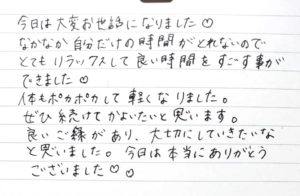 今日は大変お世話になりました♡
なかなか自分だけの時間がとれないので
とてもリラックスして良い時間をすごす事が
できました♡
体もポカポカして軽くなりました。
ぜひ続けてかよいたいと思います。
良いご縁があり、大切にしていきたいな
と思いました。今日は本当にありがとう
ございました♡♡